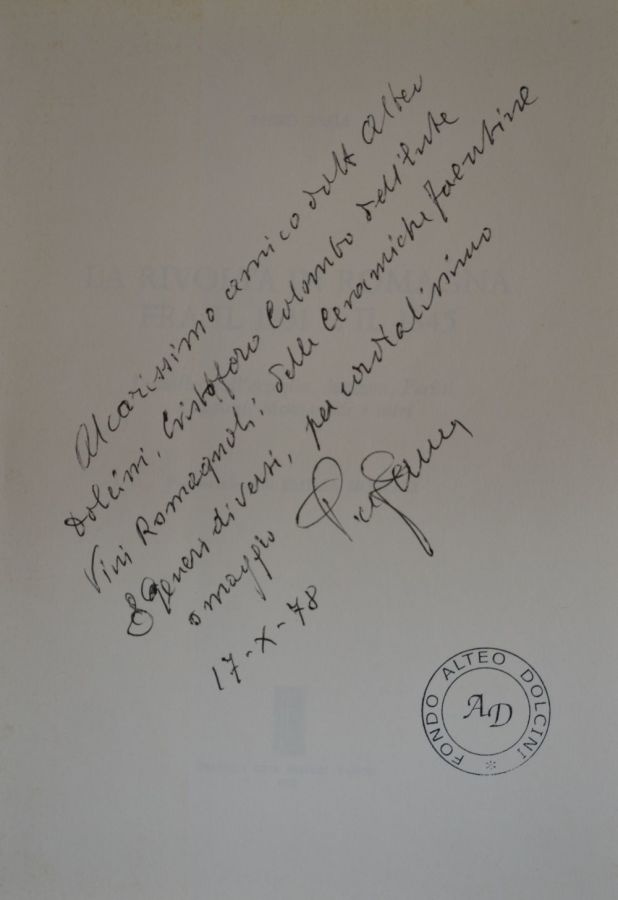 Al carissimo amico dott Alteo
Dolcini, Cristoforo Colombo dell'Ente
Vini Romagnoli; delle ceramiche faentine
& Generi diversi, per cordialissimo
omaggio
17-X-78
FONDO ALTEO DOLCINI
AD
LA RIVOLTA DI ROMAGNA